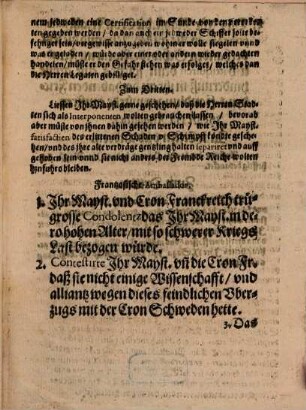 newsedweben eine Certification im Sunde von den verordneten
ten gegeben werden / da dan auch ein jedweder Schiffer solte
vergewisse anzugeben wohin er wolle sieglen und
was er geloben / würde aber einer oder ander wieder gedachten
handelen / müste er den Gefahr stehen was erfolget / welches dan
die Herren Legaten gebilliget.
Zum Dritten.
Liessen Ihr Mayst. gerne geschehen / daß die Herren Staden
ten sich als Interponenten wolten gebrauchen lassen / bevorab
aber müste von ihnen dahin gesehen werden / wie Ihr Mayst.
satisfaction des erlittenen Schaden und Schimpff könte geschehen
/ und des ihre alte verdräge gentzlig halten separiret und auff
gehoben sein und sie nicht anders der Freinde Reiche wolten
hinführo bleiben.
Frantzosische
1. Ihr Mayst. und Cron Franckreich trü-
grosse Condolentz das Ihr Mayst. in dero
hohen Alter / mit so schwerer Kriegs
Last bezogen würde.
2. Contestirte Ihr Mayst. uñ die Cron Fr.
daß sie nicht einige Wissenschafft / und
alliantz wegen dieses feindlichen Vber-
zugs mit der Cron Schweden hette.
3. Das